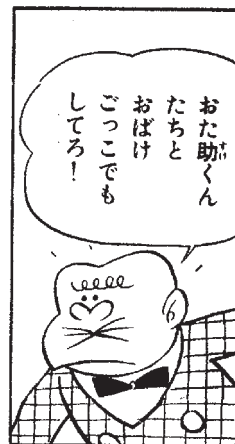 おた助くん
たちと
おばけ
ごっこでも
してろ!